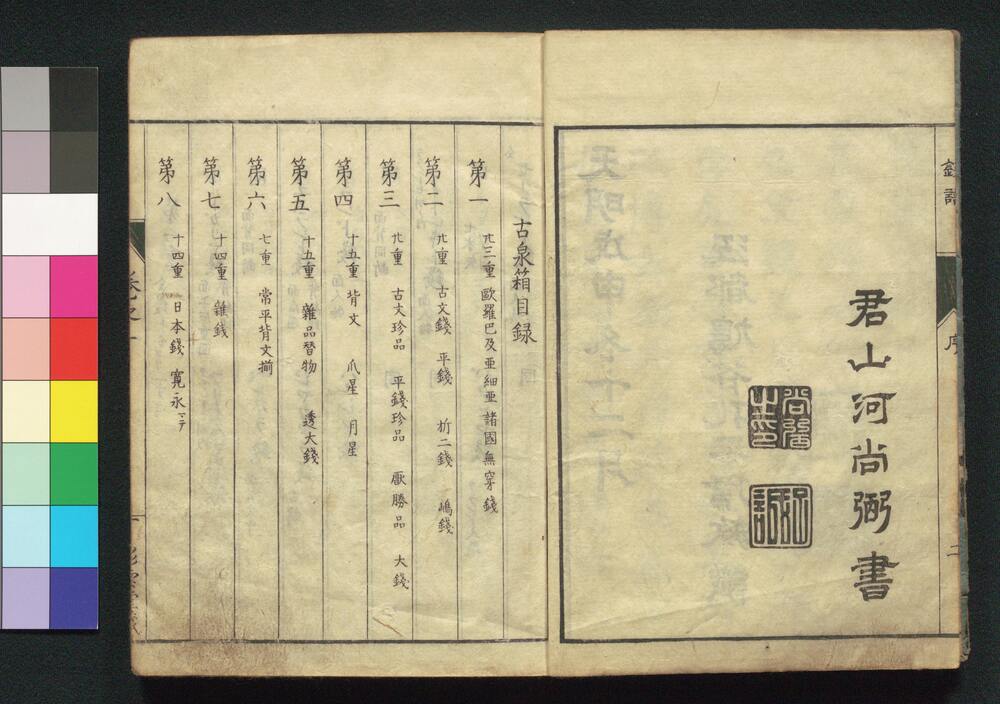 君山河尚弼書
序
二
古泉箱目録
第一 卄三重 歐羅巴及亜細亜諸國無穿錢
第二 卄重 古文錢 平錢 折二錢 嶋錢
第三 卄重 古文珍品 平錢珍品 厭勝品 大錢
第四 十五重 背文 爪星 月星
第五 十五重 雜品替物 透大錢
第六 七重 常平背文揃
第七 十四重 雜錢
第八 十四重 日本錢 寛永一テ